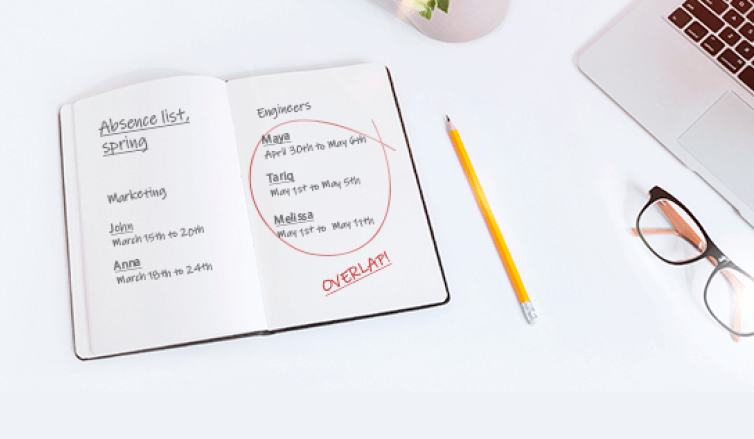 Absence list,
spring
Marketing
John
March 15th to 20th
Anna
March 18th to 24th
Engineers
Maya
April 30th to May 6th
Tariq
May 1st to May 5th
Melissa
May 1st to May 11th
OVERLAP!